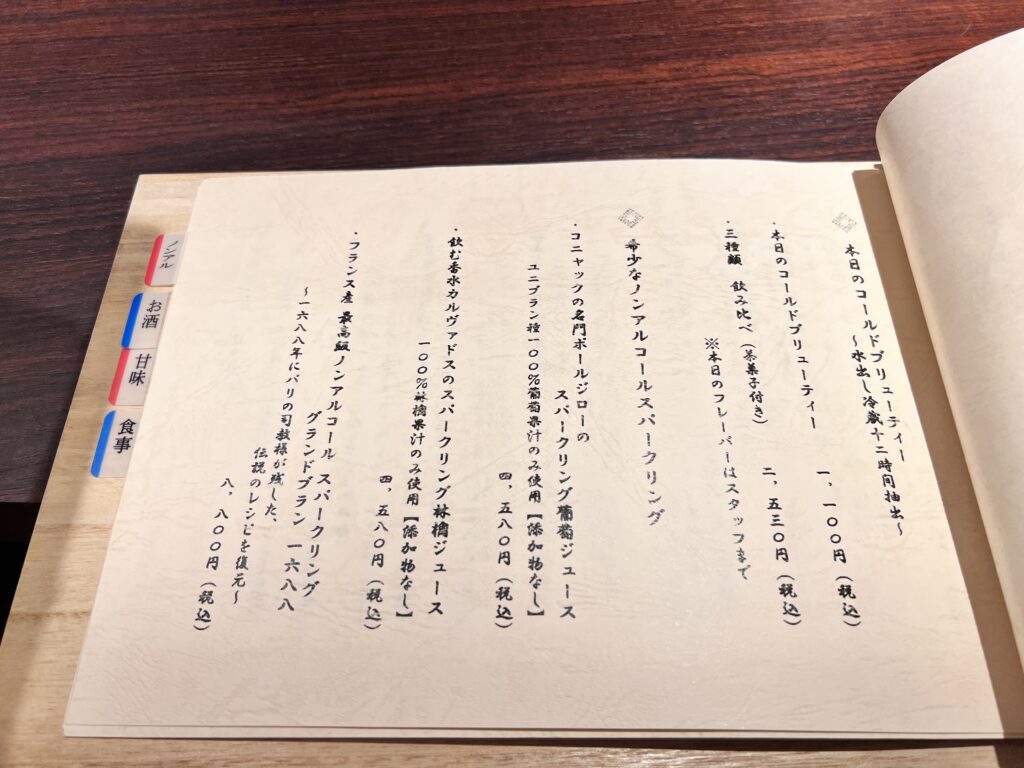 本日のコールドブリューティー
～水出し冷蔵十二時間抽出～
・本日のコールドブリューティー
一，一〇〇円（税込）
・三種類　飲み比べ（茶菓子付き）
二，五三〇円（税込）
※本日のフレーバーはスタッフまで
希少なノンアルコールスパークリング
・コニャックの名門ポールジローの
スパークリング葡萄ジュース
ユニブラン種一〇〇％葡萄果汁のみ使用【添加物なし】
四，五八〇円（税込）
・飲む香水カルヴァドスのスパークリング林檎ジュース
一〇〇％林檎果汁のみ使用【添加物なし】
四，五八〇円（税込）
・フランス産 最高級ノンアルコール スパークリング
グランドブラン 一六八八
～一六八八年にパリの司教様が残した、
伝説のレシピを復元～
八，八〇〇円（税込）
ノンアル
お酒
甘味
食事